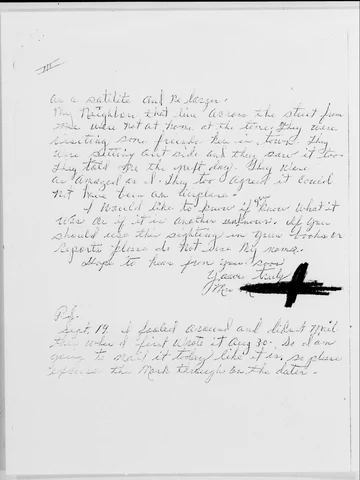 III
as a satilite and no larger.
My Neighbors that live across the street from
me were not at home at the time. They were
visiting some friends here in town. They
were sitting out side and they saw it too.
They told me the next day. They were
as amazed as I. They too agreed it could
not have been an airplane.
I would like to know if you know what it
was or if it is another unknown. If you
should use this sighting in your books or
reports please do not use my name.
Hope to hear from you soon
Yours truly
Mrs
P.S.
Sept. 19. I fooled around and didn't mail
this when I first wrote it Aug 30. So I am
going to mail it today like it is. so please
excuse the mark through on the dates.